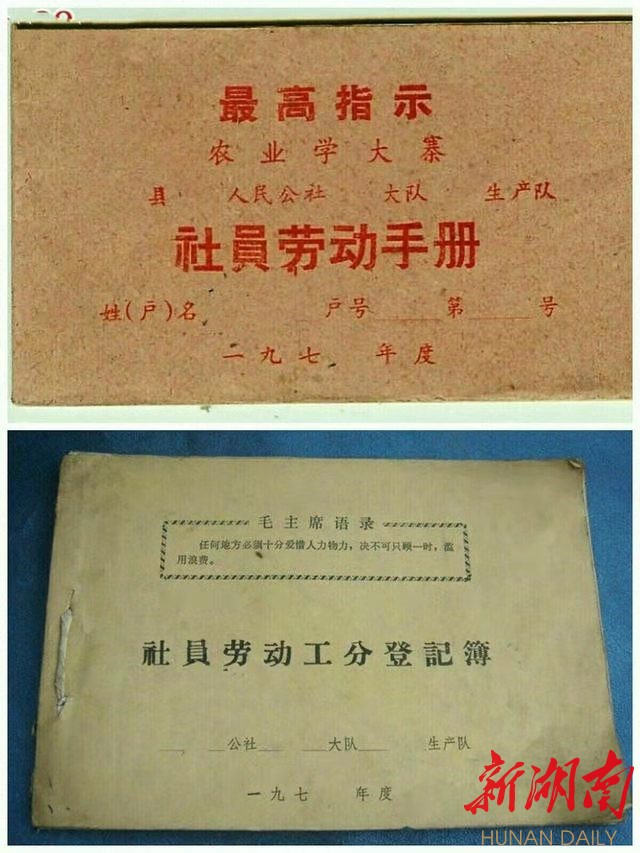 最高指示
农业学大寨
县 人民公社 大队 生产队
社員劳动手册
姓(户)名 户号 第 号
一九七 年度
毛主席语录
任何地方必须十分爱惜人力物力，决不可只顾一时，滥
用浪费。
社員劳动工分登記簿
公社 大队 生产队
一九七 年度
新湖南
HUNAN DAILY